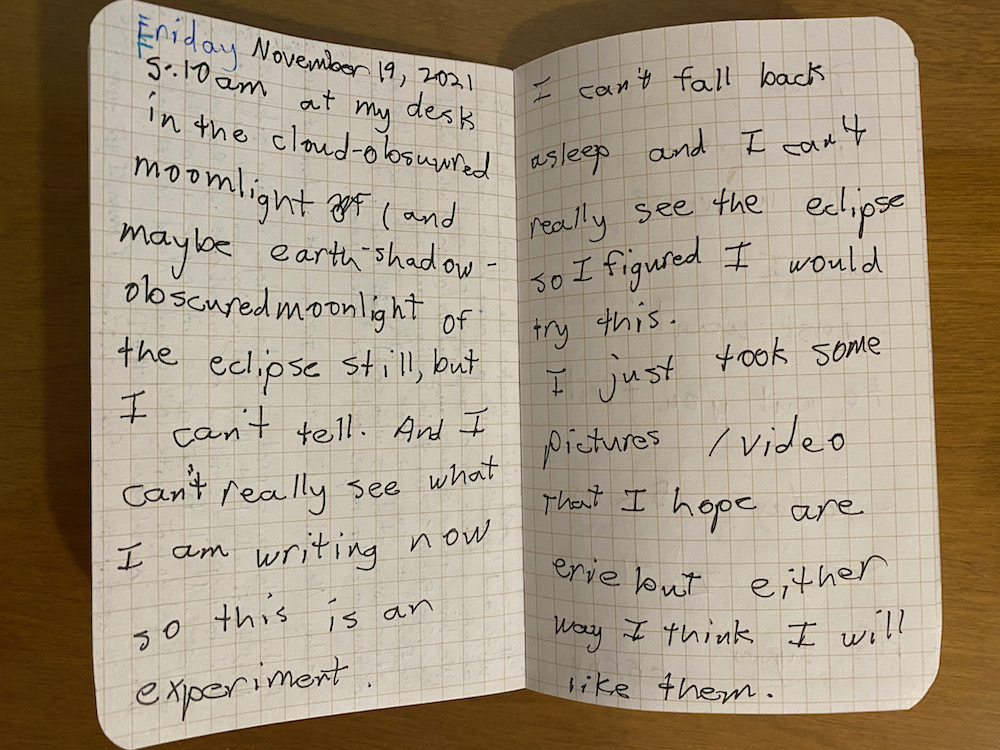 Friday November 19, 2021
5:10am at my desk
in the cloud-obsuured
moomlight of (and
maybe earth-shadow-
obscured moonlight of
the eclipse still, but
I can't tell. And I
can't really see what
I am writing now
so this is an
experiment.
I can't fall back
asleep and I can't
really see the eclipse
so I figured I would
try this.
I just took some
pictures / video
that I hope are
erie but either
way I think I will
like them.